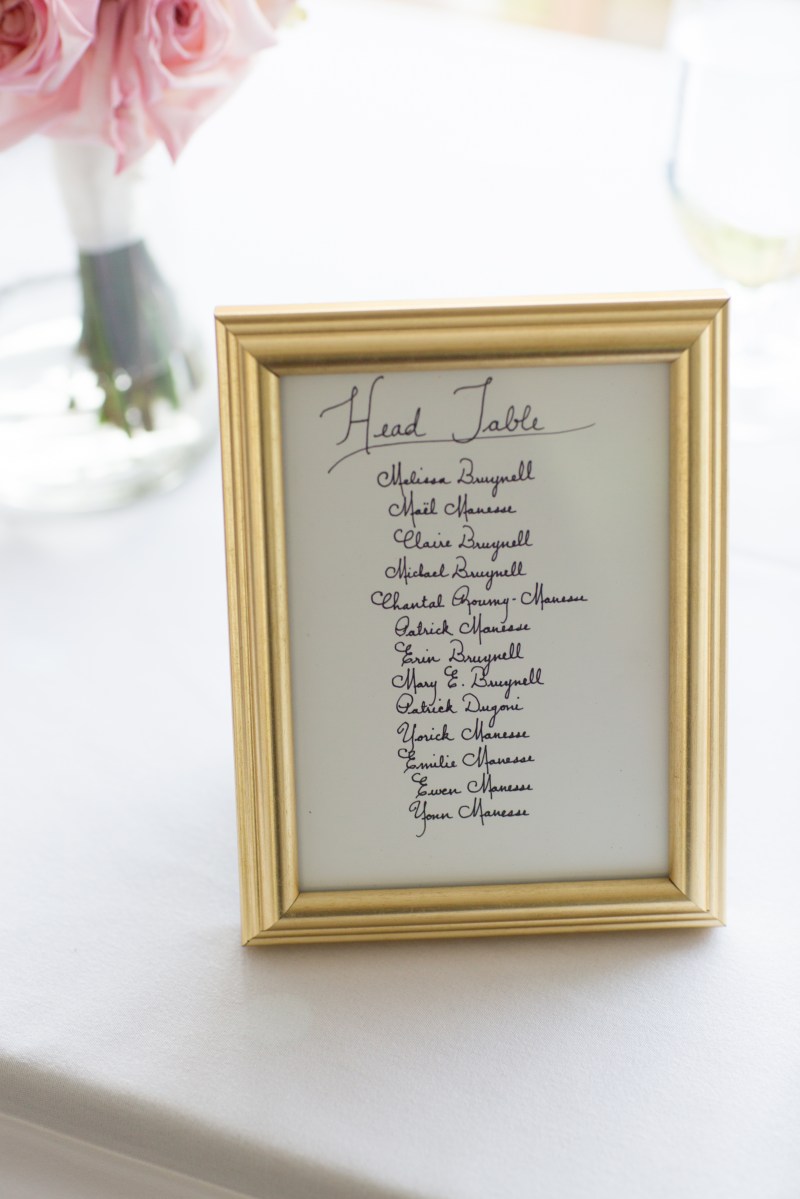 Head Table
Melissa Bruynell
Maël Manesse
Claire Bruynell
Michael Bruynell
Chantal Roumy-Manesse
Patrick Manesse
Erin Bruynell
Mary E. Bruynell
Patrick Dugoni
Yorick Manesse
Emilie Manesse
Ewen Manesse
Yonn Manesse